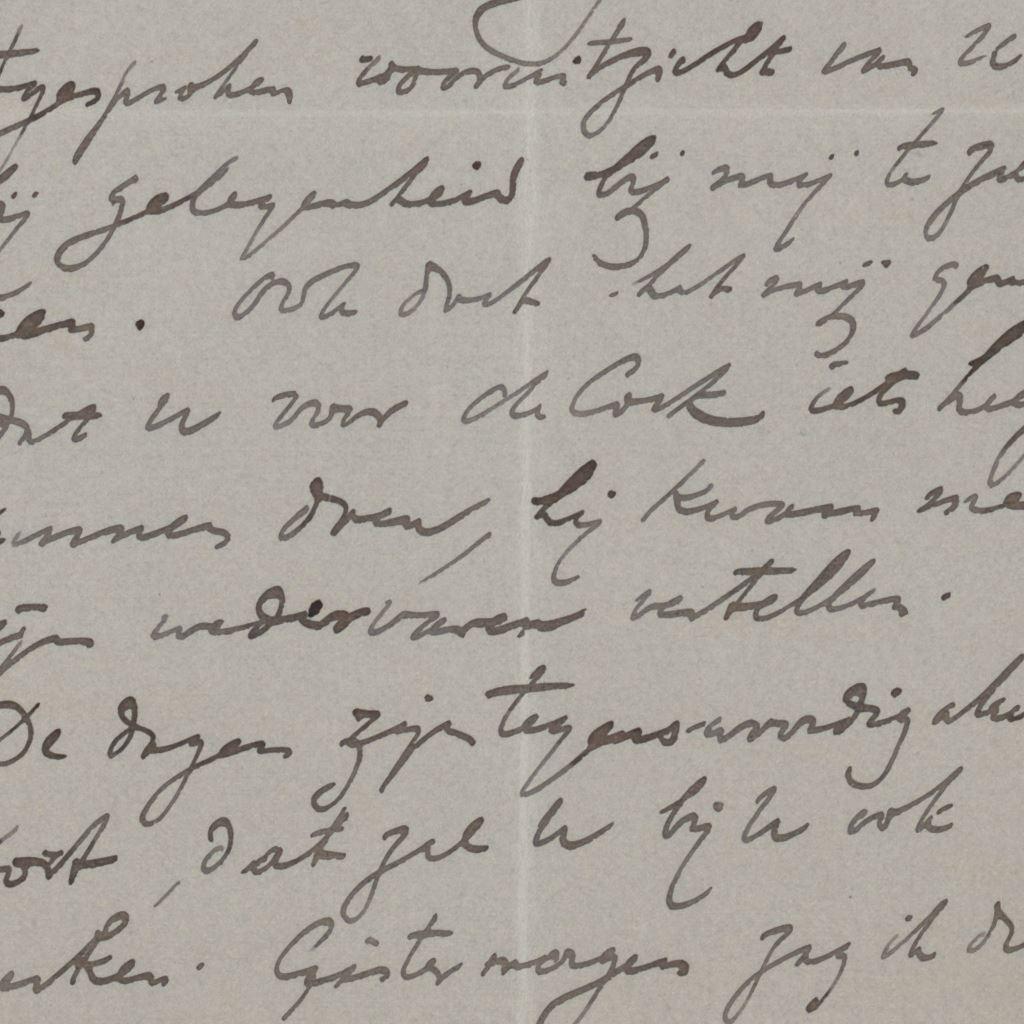 tgesproken vooruitzicht van U
ij gelegenheid bij mij te zie
ien. Ook doet het mij gen
dat u voor de Cock iets hee
unnen doen, hij kwam me
ijn wedervaren vertellen.
De dagen zijn tegenswoordig
ort, dat zul U bij U ook
erken. Gistermorgen zag ik